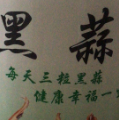 黑蒜
每天三粒黑蒜
健康幸福一